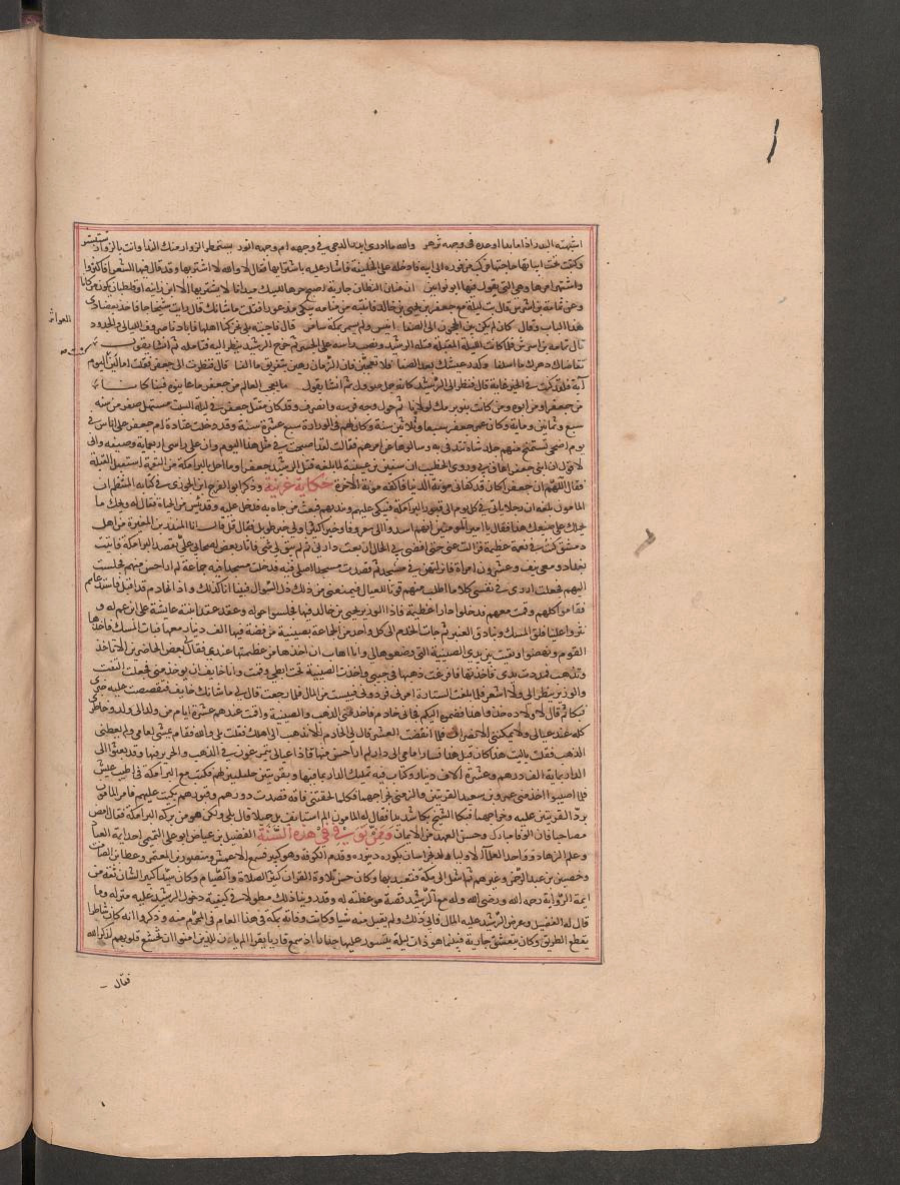 اشبهته البدر اذا ما بدا اوحده في وصفه نرهو والله ما ادري ابدا الدجى في وجهه ام وجهه انور يستمطر الزوار منك الندا وانت بالزوار تستبشر
وكتبت تحت ابياتها حاجتها فركب من فوره الى ابيه فادخله على الخليفة فاشار عليه باشترايها فقال لا والله لا اشتريها وقد قال فيها الشعرا فاكثروا
واشتهر امرها وهي التي يقول فيها ابو نواس لا يشتريها الا ابن زانية او قلطبان يكون من كانا
وعن ثمامة بن اشرس قال بت ليلة مع جعفر بن يحيى بن خالد فانتبه من منامه يبكي مذعورا فقلت ما شانك قال رايت شيخا جا فاخذ بعضادتي
هذا الباب وقال كان لم يكن بين الحجون الى الصفا انيس ولم يسمر بمكة سامر قال فاجبته بلى نحن كنا اهلها فابادنا صروف الليالي والجدود
العواثر
قال ثمامة بن اشرس فلما كانت الليلة المقبلة قتله الرشيد ونصب راسه على الجسر ثم خرج الرشيد ينظر اليه فتامله ثم انشا يقول
تقاضاك دهرك ما اسلفا وكدر عيشك بعد الصفا فلا تعجبن فان الزمان رهين بتفريق ما الفا قال فنظرت الى جعفر فقلت اما لئن اصبحت اليوم
آية فلقد كنت في الجود غاية قال فنظر الي الرشيد كانه جمل صؤول ثم انشا يقول ما يعجب العالم من جعفر ما عاينوه فبنا كانا
من جعفر او من ابوه ومن كانت بنو برمك لولانا ثم حول وجه فرسه وانصرف وقد كان مقتل جعفر في ليلة السبت مستهل صفر من سنة
سبع وثمانين وماية وكان عمر جعفر سبعا وثلاثين سنة وكان لهم في الوزارة سبع عشرة سنة وقد دخلت عبادة ام جعفر على اناس في
يوم اضحى تستمنح منهم جلد شاة تتدفى به وسالوها عن امرهم فقالت لقد اصبحت في مثل هذا اليوم وان على راسي اربعماية وصيفة واني
لاقول ان ابني جعفرا عاق لي وروى الخطيب ان سفيان بن عيينة لما بلغه قتل الرشيد جعفرا وما احل بالبرامكة من النقمة استقبل القبلة
فقال اللهم ان جعفرا كان قد كفاني مؤنة الدنيا فاكفه مؤنة الآخرة حكاية غريبة وذكر ابو الفرج ابن الجوزي في كتابه المنتظم ان
المامون بلغه ان رجلا ياتي في كل يوم الى قبور البرامكة فيبكي عليهم ويندبهم فبعث من جاء به فدخل عليه وقد يئس من الحياة فقال له ويحك ما
يحملك على صنيعك هذا فقال يا امير المومنين انهم اسدوا الي معروفا وخيرا كثيرا ولي خبر طويل فقال قل فقال انا المنذر بن المغيرة من اهل
دمشق كنت في نعمة عظيمة فزالت عني حتى افضى بي الحال الى ان بعت داري ثم لم يبق لي شي فاشار بعض اصحابي علي بقصد البرامكة فاتيت
بغداد ومعي نيف وعشرون امراة فانزلتهن في مسجد ثم قصدت مسجدا اصلي فيه فدخلت مسجدا فيه جماعة لم ار احسن منهم فجلست
اليهم فجعلت ادير في نفسي كلاما اطلب منهم قوتا للعيال فيمنعني من ذلك ذل السوال فبينا انا كذلك واذا الخادم قد اقبل فاستدعاهم
فقاموا كلهم وقمت معهم فدخلوا دارا عظيمة فاذا الوزير يحيى بن خالد فيها فجلسوا حوله وعقد عقد ابنته عايشة على ابن عم له و
نثروا علينا فلق المسك وبنادق العنبر ثم جات الخدم الى كل واحد من الجماعة بصينية من فضة فيها الف دينار معها فتات المسك فاخذها
القوم ونهضوا وبقيت بين يدي الصينية التي وضعوها لي وانا اهاب ان اخذها من عظمتها عندي فقال بعض الحاضرين الا تاخذ
وتذهب فمددت يدي فاخذتها فافرغت ذهبها في جيبي واخذت الصينية تحت ابطي وقمت وانا خايف ان يوخذ مني فجعلت التفت
والوزير ينظر الي ولا اشعر فلما بلغت الستارة امر بي فردوني فيئست من المال فلما رجعت قال لي ما شانك خايف فقصصت عليه خبري
فبكا ثم قال لاولاده خذوا هذا فضموه اليكم فجاني خادم فاخذ مني الذهب والصينية واقمت عندهم عشرة ايام من ولد الى ولد وخاطري
كله عند عيالي ولا يمكنني الانصراف فلما انقضت العشر قال لي الخادم الا تذهب الى اهلك فقلت بلى والله فقام يمشي امامي ولم يعطني
الذهب فقلت ياليت هذا كان قبل هذا فسار امامي الى دار لم ار احسن منها فاذا عيالي يتمرغون في الذهب والحرير فيها وقد بعثوا الى
الدار بماية الف درهم وعشرة آلاف دينار وكتاب فيه تمليك الدار بما فيها وبقريتين جليلتين لهم فكنت مع البرامكة في اطيب عيش
فلما اصيبوا اخذ مني عمرو بن سعيد القريتين والزمني بخراجهما فكلما لحقتني فاقة قصدت دورهم وقبورهم بكيت عليهم فامر المامون
برد القريتين عليه وخراجهما فبكا الشيخ بكاء شديدا فقال له المامون الم استانف بك جميلا قال بلى ولكن هو من بركة البرامكة فقال امض
مصاحبا فان الوفا مبارك وحسن العهد من الايمان وممن توفي في هذه السنة الفضيل بن عياض ابو علي التميمي احد ايمة العباد
وعلم الزهاد وواحد العلماء الاوليا ولد بخراسان بكورة دينور وقدم الكوفة وهو كبير فسمع الاعمش ومنصور بن المعتمر وعطا بن السائب
وحصين بن عبد الرحمن وغيرهم ثم انتقل الى مكة فتعبد بها وكان حسن تلاوة القران كثير الصلاة والصيام وكان سيدا كبير الشان ثقة من
ايمة الرواية رحمه الله ورضي الله وله مع الرشيد قصة موعظته له وقد روينا ذلك مطولا في كيفية دخول الرشيد عليه منزله وما
قال له الفضيل وعرض الرشيد عليه المال فابى ذلك ولم يقبل منه شيا وكانت وفاته بمكة في هذا العام في المحرم منه وذكروا انه كان شاطرا
يقطع الطريق وكان يتعشق جارية فبينما هو ذات ليلة يتسور عليها جدارا اذ سمع قاريا يقرا الم يان للذين امنوا ان تخشع قلوبهم لذكر الله
فقال